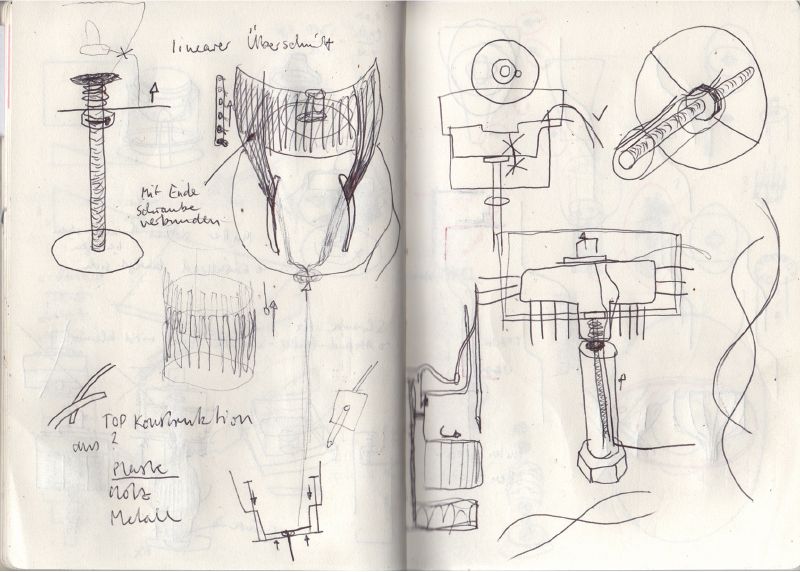 linearer Überschnitt
Mit Ende
Schraube
verbunden
TOP Konstruktion
aus
?
Plastik
Holz
Metall